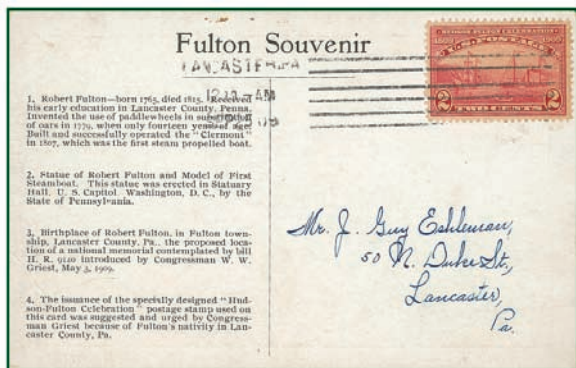 Fulton Souvenir
HUDSON-FULTON CELEBRATION
U.S. POSTAGE
2 2
TWO CENTS
LANCASTER, PA.
AM
1. Robert Fulton—born 1765, died 1815. Received
his early education in Lancaster County, Penna.
Invented the use of paddlewheels in
of oars in 1779, when only fourteen years of age.
Built and successfully operated the "Clermont"
in 1807, which was the first steam propelled boat.
2. Statue of Robert Fulton and Model of First
Steamboat. This statue was erected in Statuary
Hall, U. S. Capitol, Washington, D. C., by the
State of Pennsylvania.
3. Birthplace of Robert Fulton, in Fulton town-
ship, Lancaster County, Pa., the proposed loca-
tion of a national memorial contemplated by bill
H. R. 9120 introduced by Congressman W. W.
Griest, May 3, 1909.
4. The issuance of the specially designed "Hud-
son-Fulton Celebration" postage stamp used on
this card was suggested and urged by Congress-
man Griest because of Fulton's nativity in Lan-
caster County, Pa.
Mr. J. Guy Eshleman,
50 N. Duke St.,
Lancaster,
Pa.